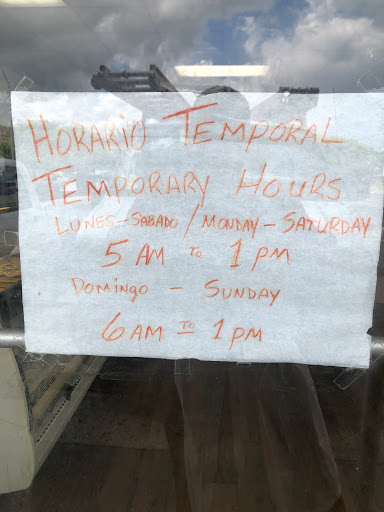 HORARIO TEMPORAL
TEMPORARY HOURS
LUNES-SABADO / MONDAY - SATURDAY
5 AM TO 1 PM
DOMINGO - SUNDAY
6 AM TO 1 PM